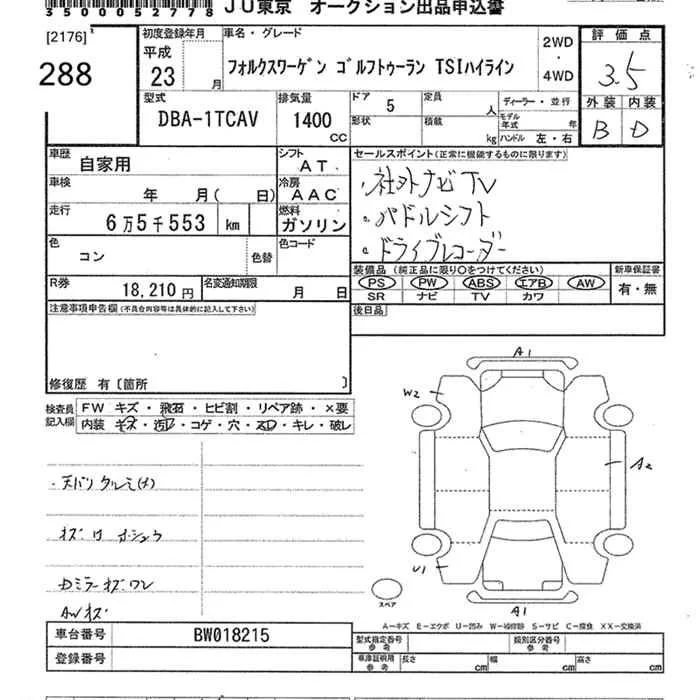 3500052778 JU東京 オークション出品申込書
[2176]
288
初度登録年月 平成 23 月
車名・グレード
フォルクスワーゲン ゴルフトゥーラン TSIハイライン
2WD ・ 4WD
評価点
3.5
外装 内装
B D
型式 DBA-1TCAV
排気量 1400 CC
ドア 5
定員 人
形状
積載 kg
ディーラー・並行
モデル年式 年
ハンドル 左・右
車歴 自家用
シフト AT
車検 年 月( 日)
冷房 AAC
走行 6万5千553 km
燃料 ガソリン
色 コン
色替
色コード
R券 18,210円
名変通知期限 月 日
セールスポイント(正常に機能するものに限ります)
社外ナビTV
パドルシフト
ドライブレコーダー
装備品 (純正品に限り○をつけてください)
PS PW ABS エアB AW
SR ナビ TV カワ
新車保証書
有・無
後日品
注意事項申告欄(不具合内容等は具体的に記入して下さい)
修復歴 有〔箇所 〕
検査員記入欄
FW キズ・飛石・ヒビ割・リペア跡・×要
内装 キズ・汚レ・コゲ・穴・スレ・キレ・破レ
天バリ
Dミラーキズワレ
AWキズ
A1
W2
A2
U1
A1
スペア
A-キズ E-エクボ U-凹み W-補修跡 S-サビ C-腐食 XX-交換済
車台番号 BW018215
登録番号
型式指定番号 参考
類別区分番号 参考
車庫証明用 参考
長さ cm
幅 cm
高さ cm